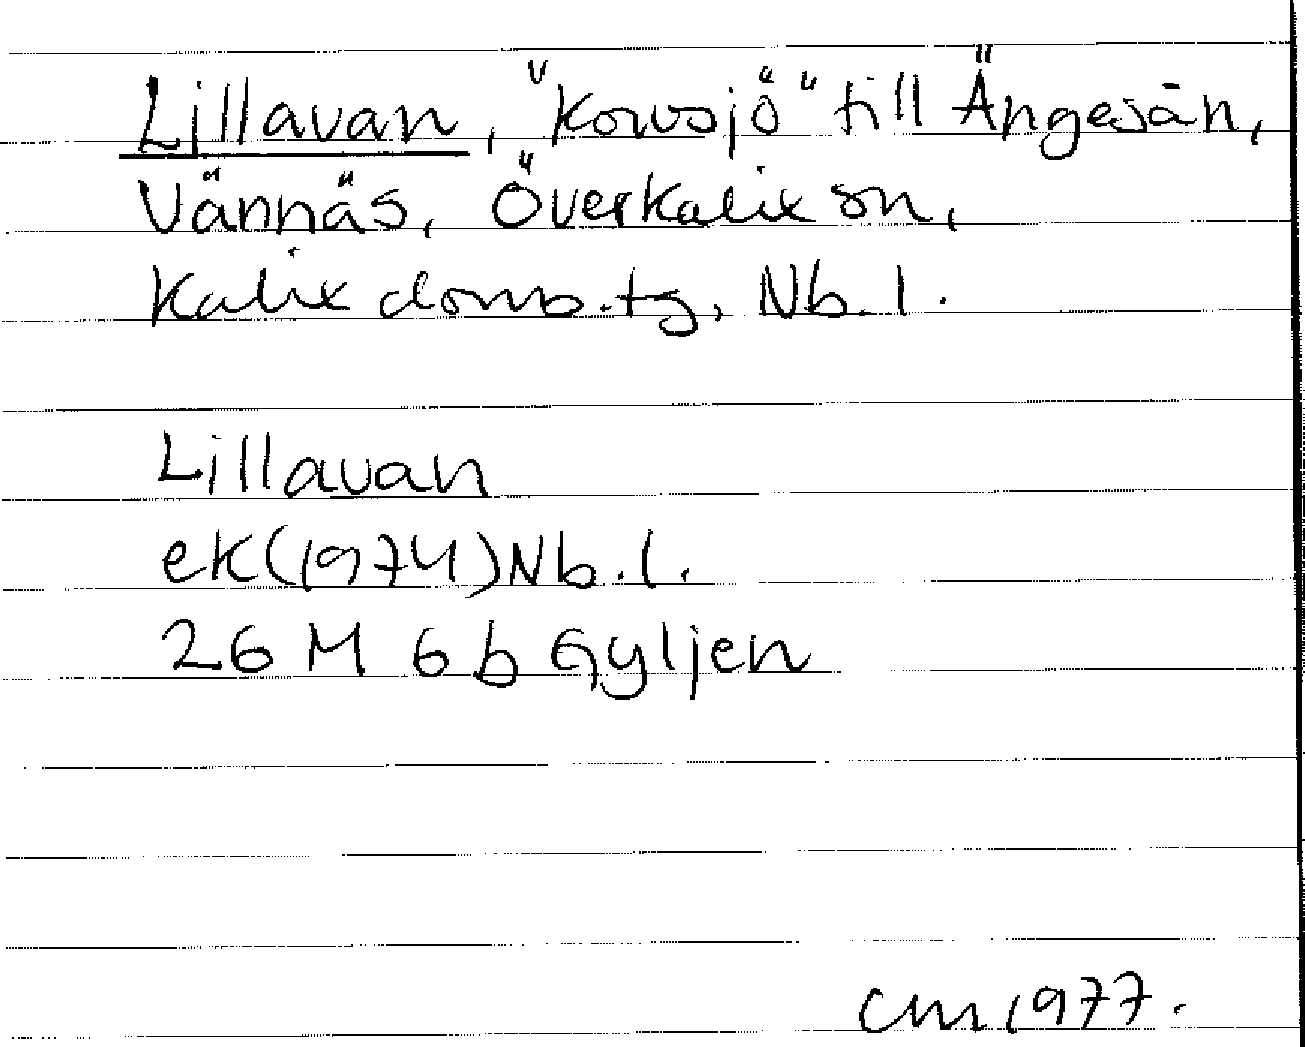 Lillavan, "korvsjö" till Ängesån,
Vännäs, Överkalix sn,
Kalix doms.tg, Nb.l.
Lillavan
ek(1974)Nb.l.
26 M 6 b Gyljen
CM 1977.